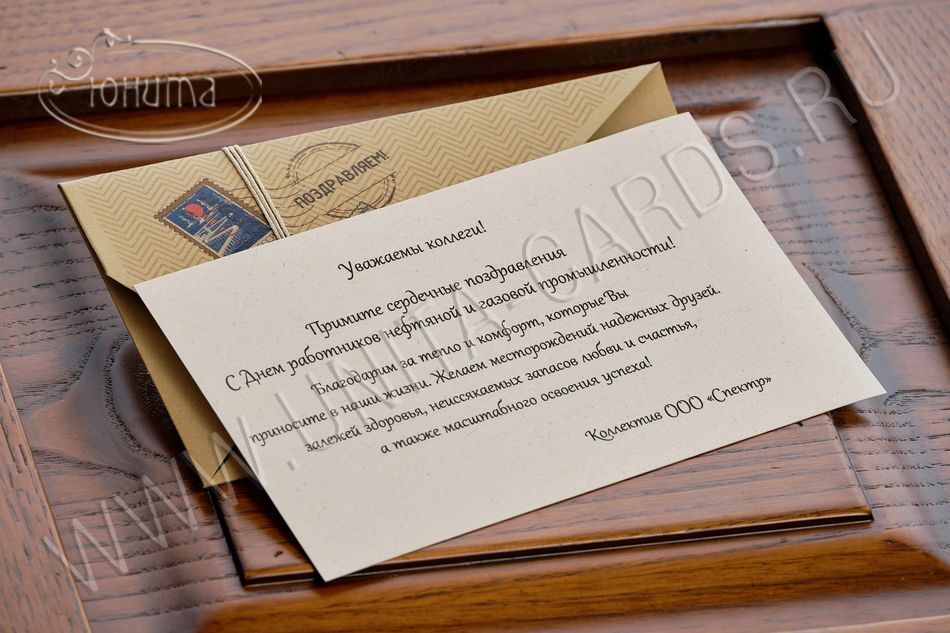 Юнита
ПОЗДРАВЛЯЕМ!
Уважаемы коллеги!
Примите сердечные поздравления
С Днем работников нефтяной и газовой промышленности!
Благодарим за тепло и комфорт, которые Вы
приносите в наши жизни. Желаем месторождений надежных друзей,
залежей здоровья, неиссякаемых запасов любви и счастья,
а также масштабного освоения успеха!
Коллектив ООО «Спектр»
WWW.UNITA-CARDS.RU